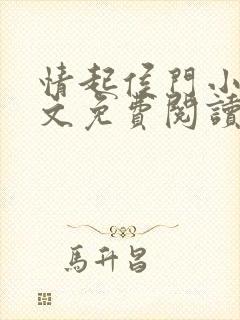 情起侯門小
文免費閱讀
馬升昌